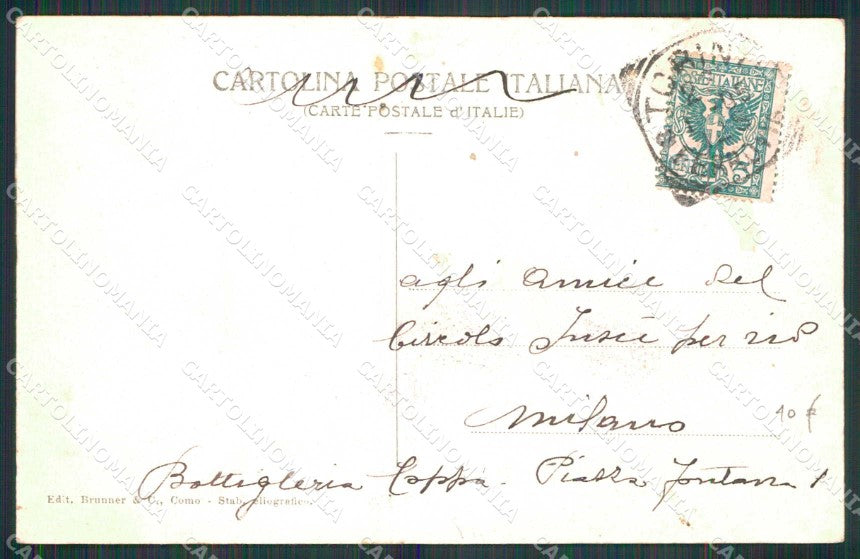 CARTOLINA POSTALE ITALIANA
(CARTE POSTALE d'ITALIE)
TORINO
POSTE ITALIANE
agli amici del
Circolo per
Milano
Bottiglieria Coppa - Piazza Fontana 1
Edit. Brunner & C., Como - Stab. eliografico.
40 €
CARTOLINOMANIA